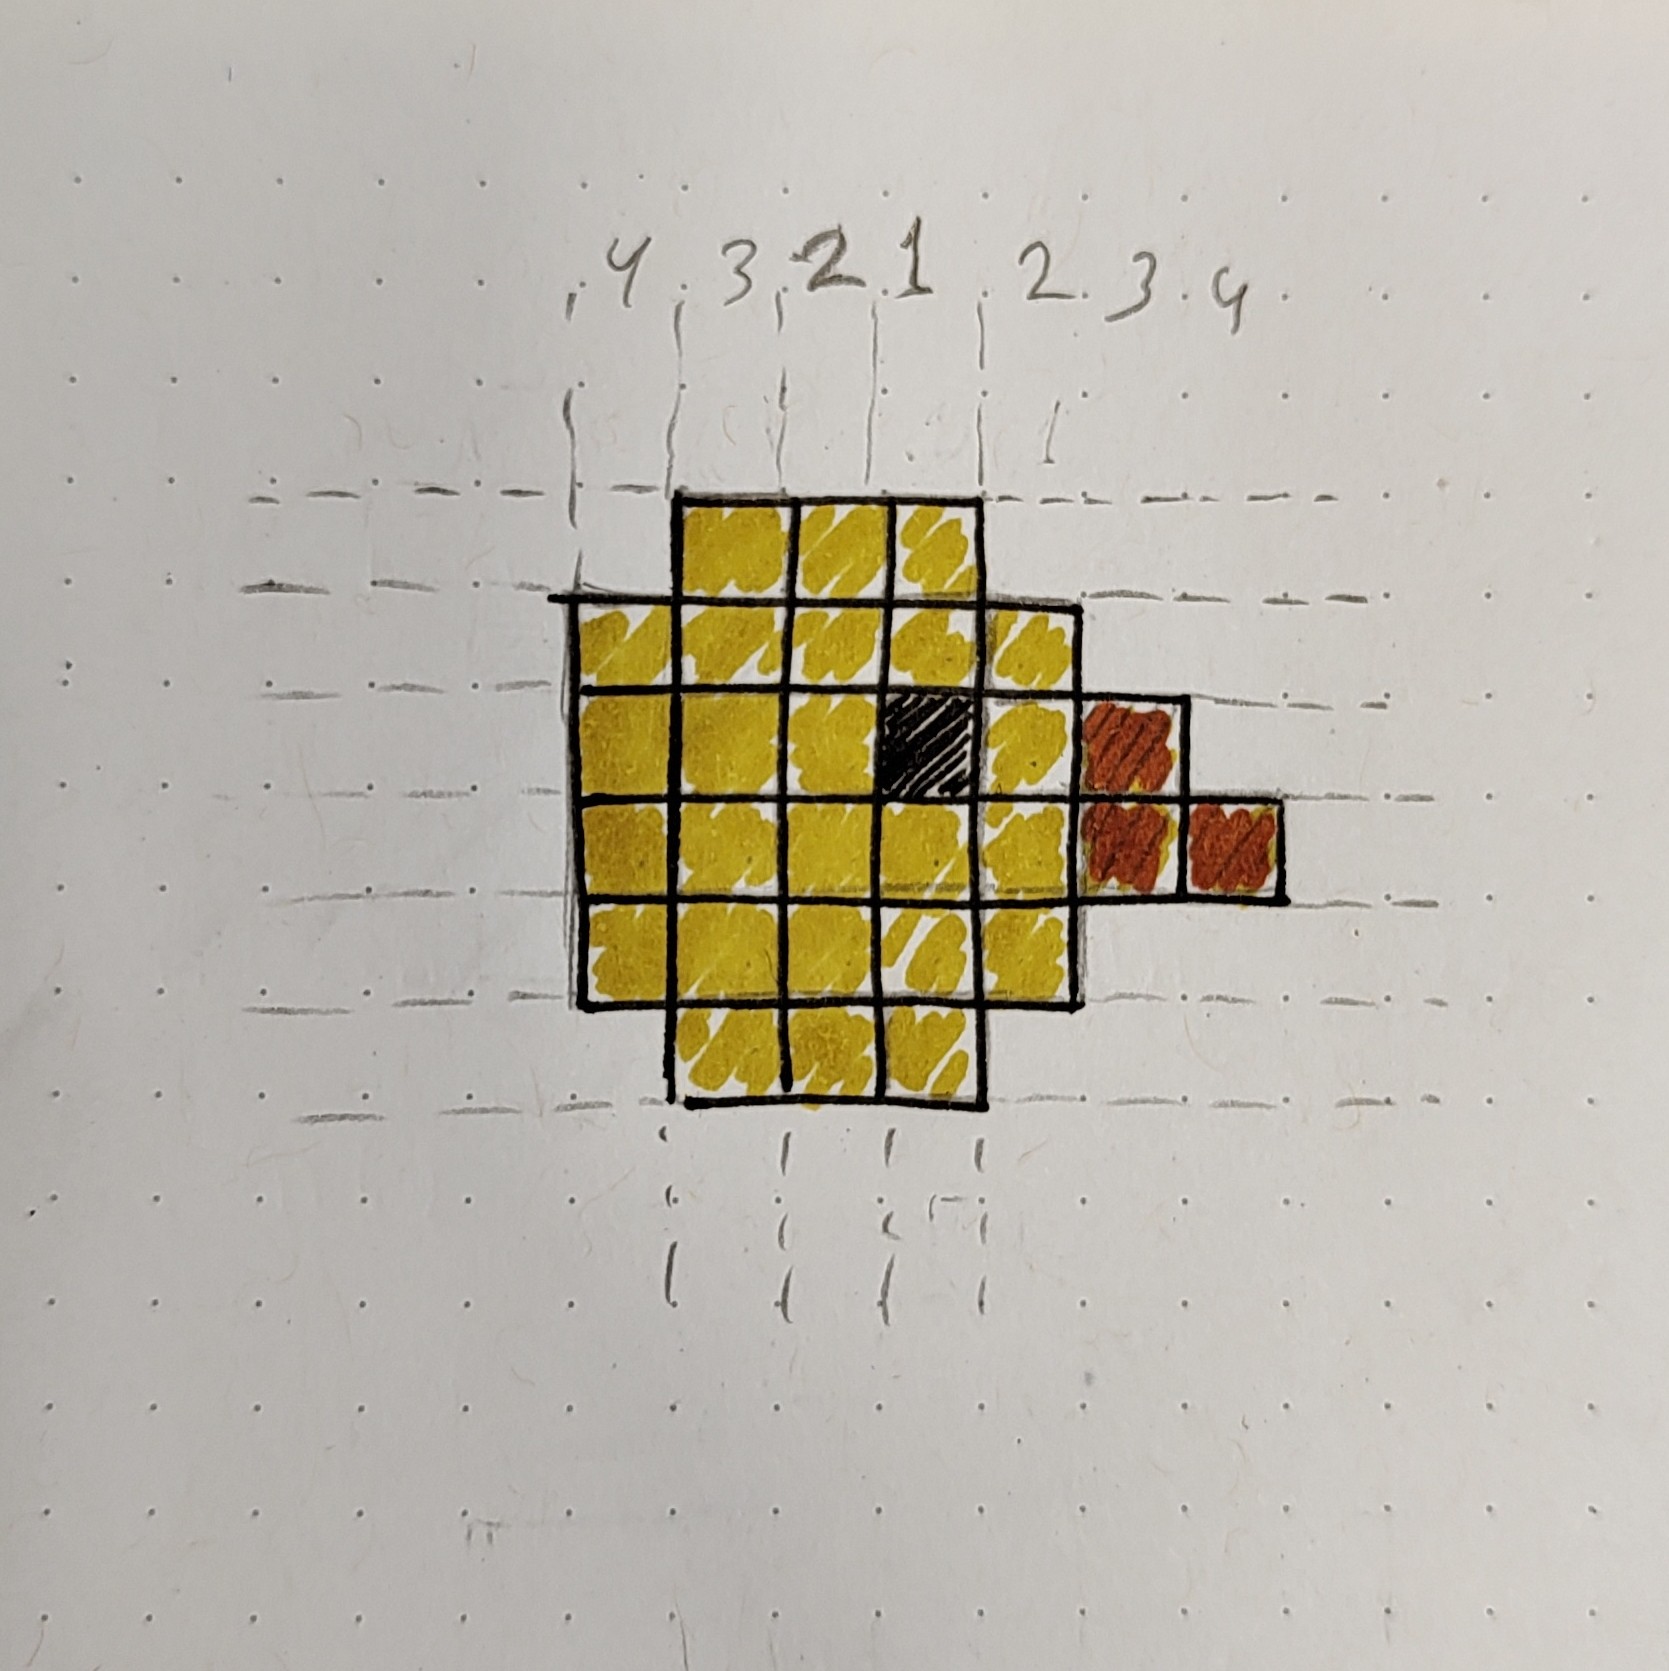 4 3 2 1 2 3 4
1